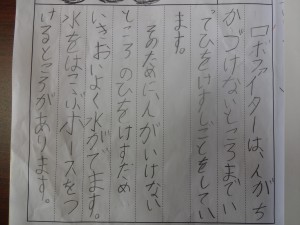 ロボファイターは、人がち
かづけないところまでい
でひをけすしごとをしてい
ます。
そのために、人がいけない
ところのひをけすため
いきおいよく水がでます。
水をはこぶホースをつ
けるところがあります。